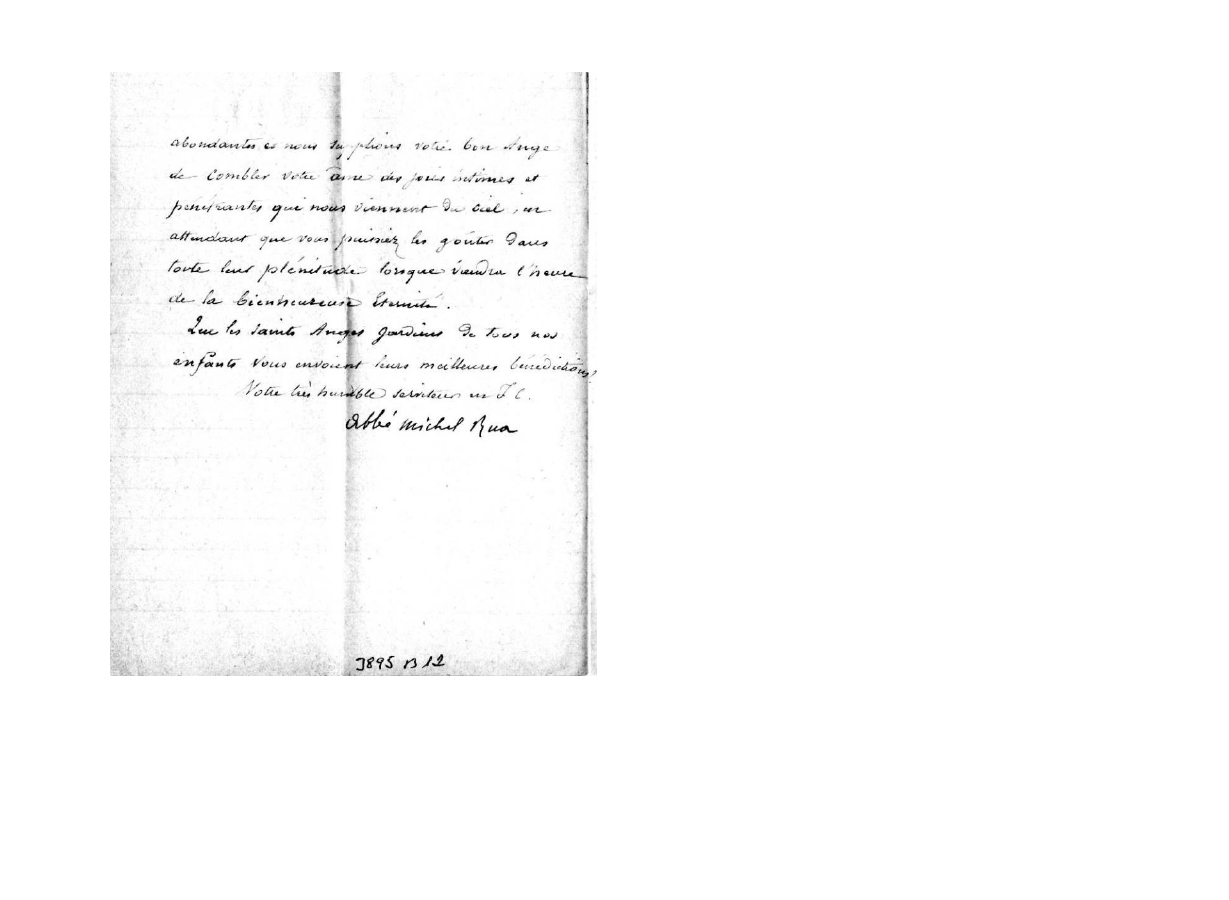 abondantes et nous supplions votre bon Ange
de combler votre âme des joies intimes et
pénétrantes qui nous viennent du ciel, en
attendant que vous puissiez les goûter dans
toute leur plénitude lorsque viendra l'heure
de la bienheureuse Eternité.
Que les saints Anges gardiens de tous nos
enfants vous envoient leurs meilleures bénédictions,
Votre très humble serviteur en J. C.
Abbé Michel Rua
3895 B 12